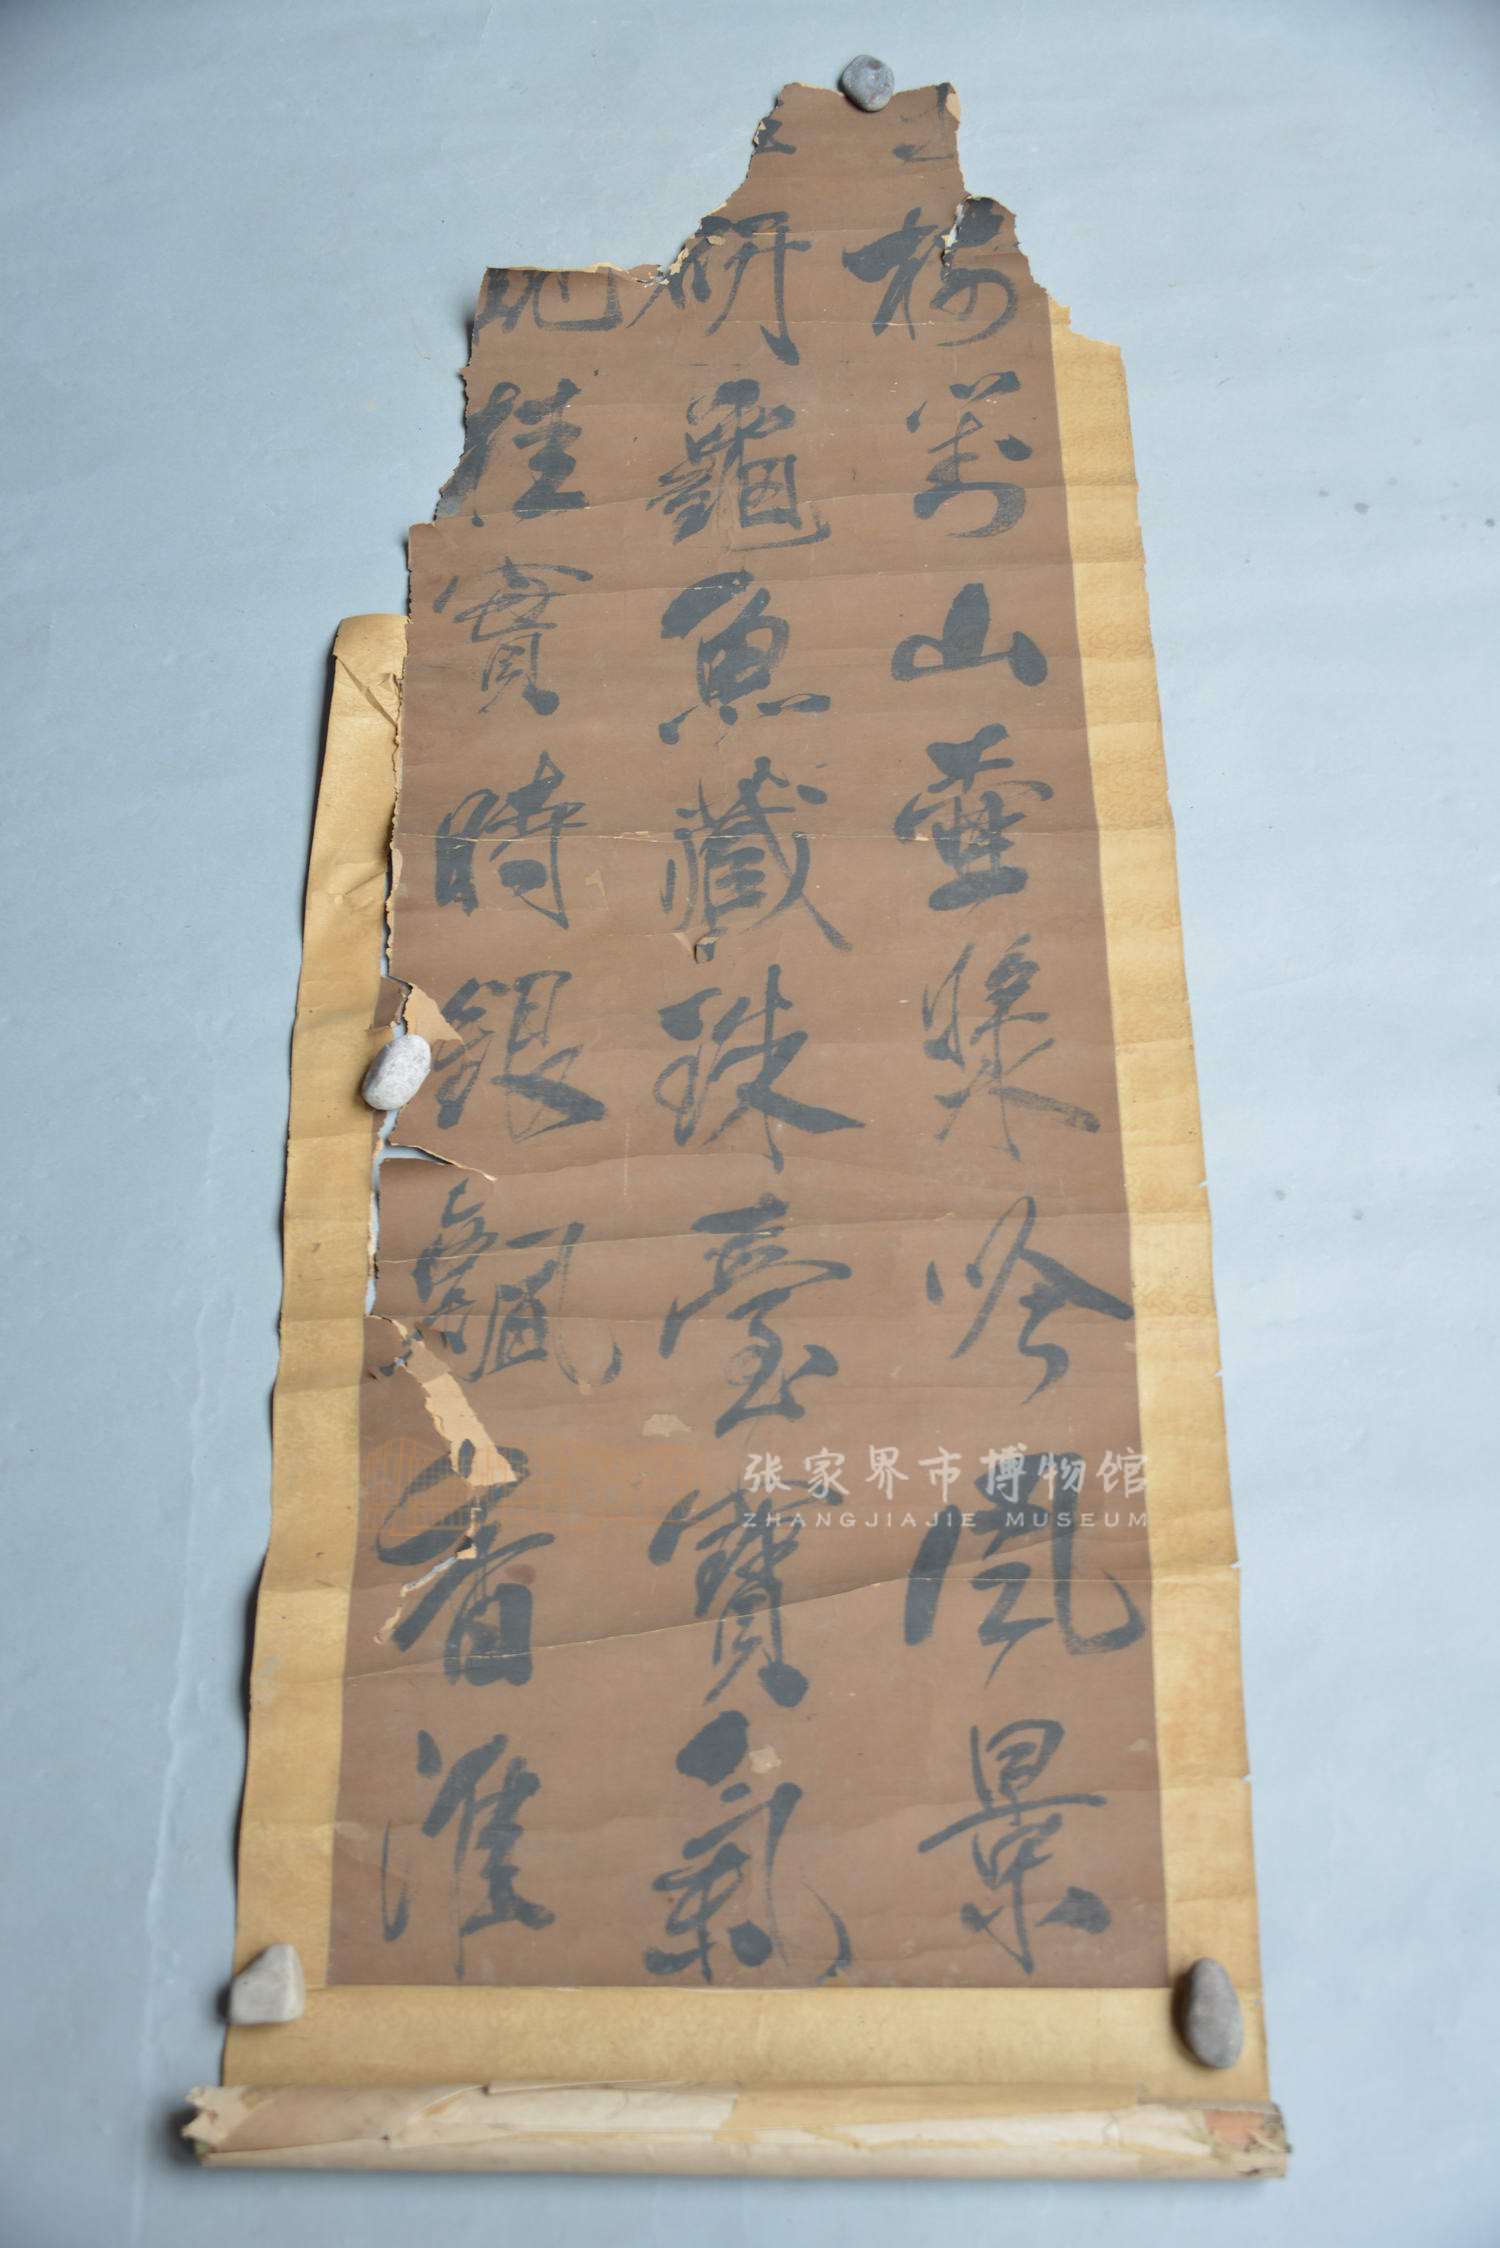 萬山壺槳吟風景
研龜魚藏珠臺寶氣
地桂實時銀看淮
张家界市博物馆
ZHANGJIAJIE MUSEUM